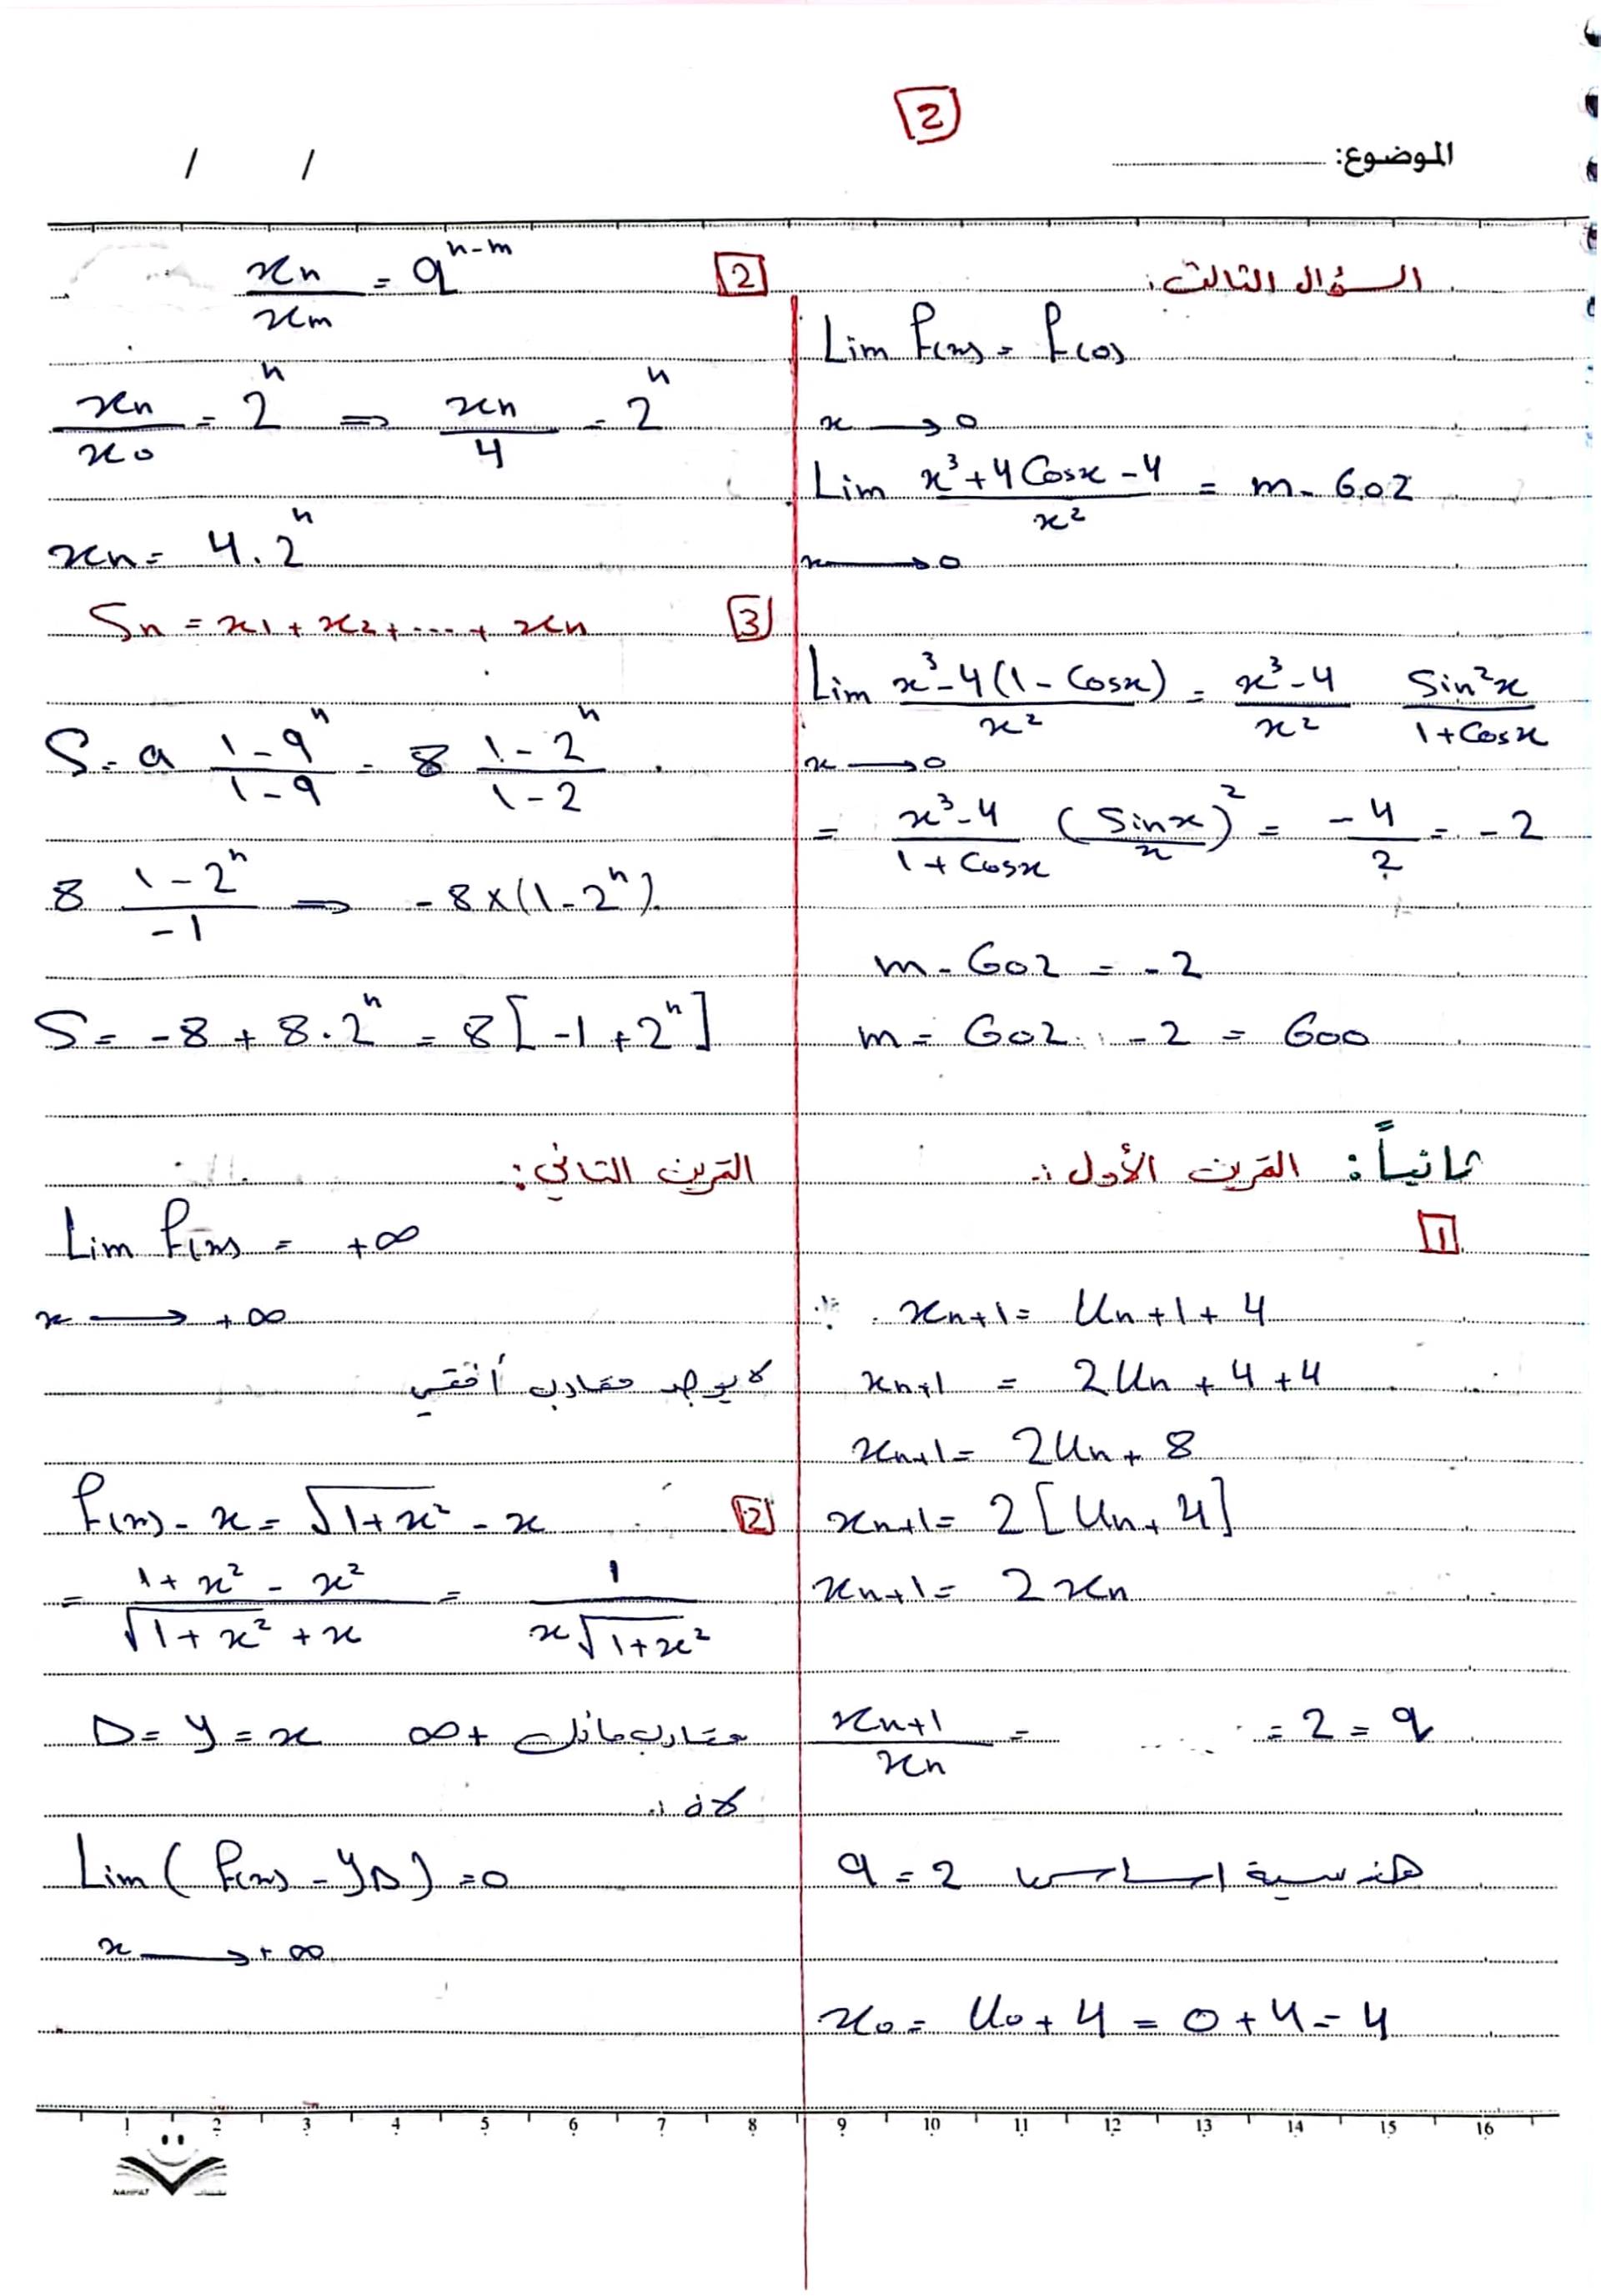 2
الموضوع:
/ /
السؤال الثالث:
Lim f(x) = f(0)
x → 0
Lim (x³ + 4 Cosx - 4)/x² = m - 602
x → 0
Lim (x³ - 4(1 - Cosx))/x² = (x³ - 4)/x² Sin²x/(1 + Cosx)
x → 0
= (x³ - 4)/(1 + Cosx) (Sinx/x)² = -4/2 = -2
m - 602 = -2
m = 602 - 2 = 600
ثانياً: التمرين الأول:
1
xn+1 = Un+1 + 4
xn+1 = 2Un + 4 + 4
xn+1 = 2Un + 8
xn+1 = 2[Un + 4]
xn+1 = 2xn
xn+1/xn = = 2 = q
هندسية اساسها q = 2
x0 = U0 + 4 = 0 + 4 = 4
2
xn/xm = q^(n-m)
xn/x0 = 2ⁿ ⇒ xn/4 = 2ⁿ
xn = 4.2ⁿ
3
Sn = x1 + x2 + .... + xn
S = a (1 - qⁿ)/(1 - q) = 8 (1 - 2ⁿ)/(1 - 2)
8 (1 - 2ⁿ)/-1 ⇒ -8×(1 - 2ⁿ)
S = -8 + 8.2ⁿ = 8[-1 + 2ⁿ]
التمرين الثاني:
Lim f(x) = +∞
x → +∞
لا يوجد مقارب أفقي
2
f(x) - x = √(1 + x²) - x
= (1 + x² - x²)/(√(1 + x²) + x) = 1/(x√(1 + x²))
D = y = x مقارب مائل +∞
لان:
Lim (f(x) - yD) = 0
x → +∞
1 2 3 4 5 6 7 8 9 10 11 12 13 14 15 16